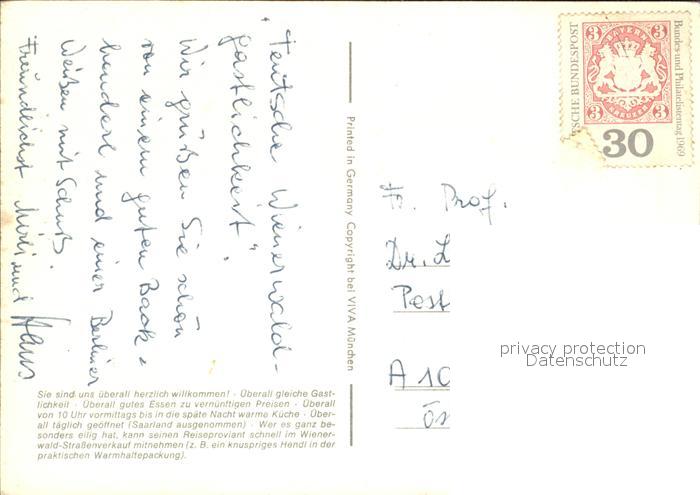 "Teutsche Wienerwald-
gastlichkeit".
Wir grüßen Sie schön
von einem guten Back-
henderl und einer Berliner
Weißen mit Schuß.
Freundlichst und Hans
Sie sind uns überall herzlich willkommen! · Überall gleiche Gast-
lichkeit · Überall gutes Essen zu vernünftigen Preisen · Überall
von 10 Uhr vormittags bis in die späte Nacht warme Küche · Über-
all täglich geöffnet (Saarland ausgenommen) · Wer es ganz be-
sonders eilig hat, kann seinen Reiseproviant schnell im Wiener-
wald-Straßenverkauf mitnehmen (z. B. ein knuspriges Hendl in der
praktischen Warmhaltepackung).
Printed in Germany Copyright bei VIVA München
SCHE BUNDESPOST
3 BAYERN 3
3 KREUZER 3
30
Bundes- und Philatelistentag 1969
Fr. Prof.
Dr. L
Post
A 10
Ös
privacy protection
Datenschutz